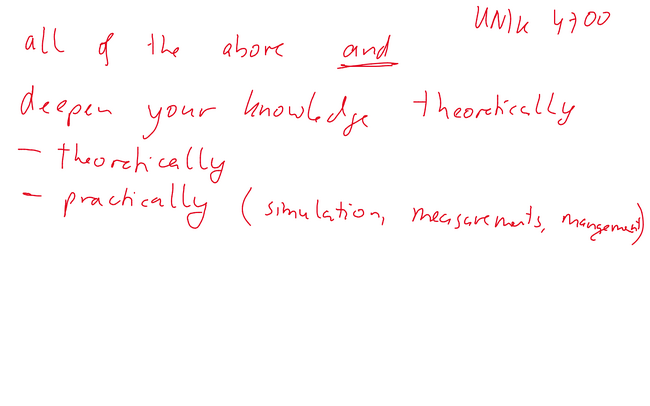 UNIK 4700
all of the above and
deepen your knowledge theoretically
- theoretically
- practically (simulation, measurements, mangement)